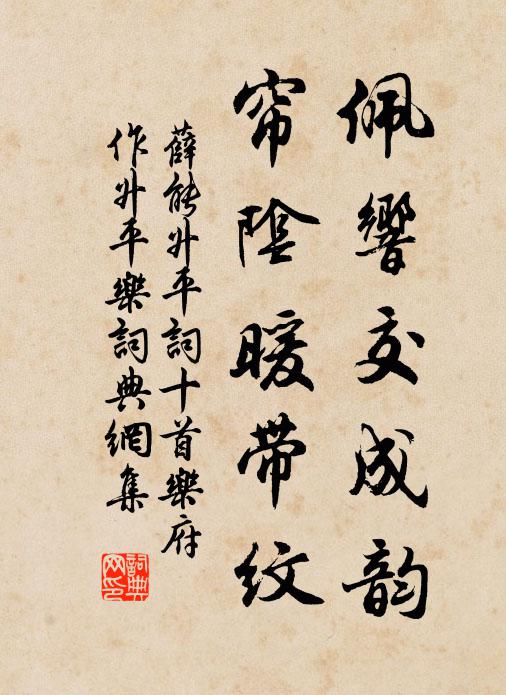 佩響交成韵
帘陰暖带紋
薛能升平詞十首樂府
作升平樂詞典網集
詞典网印